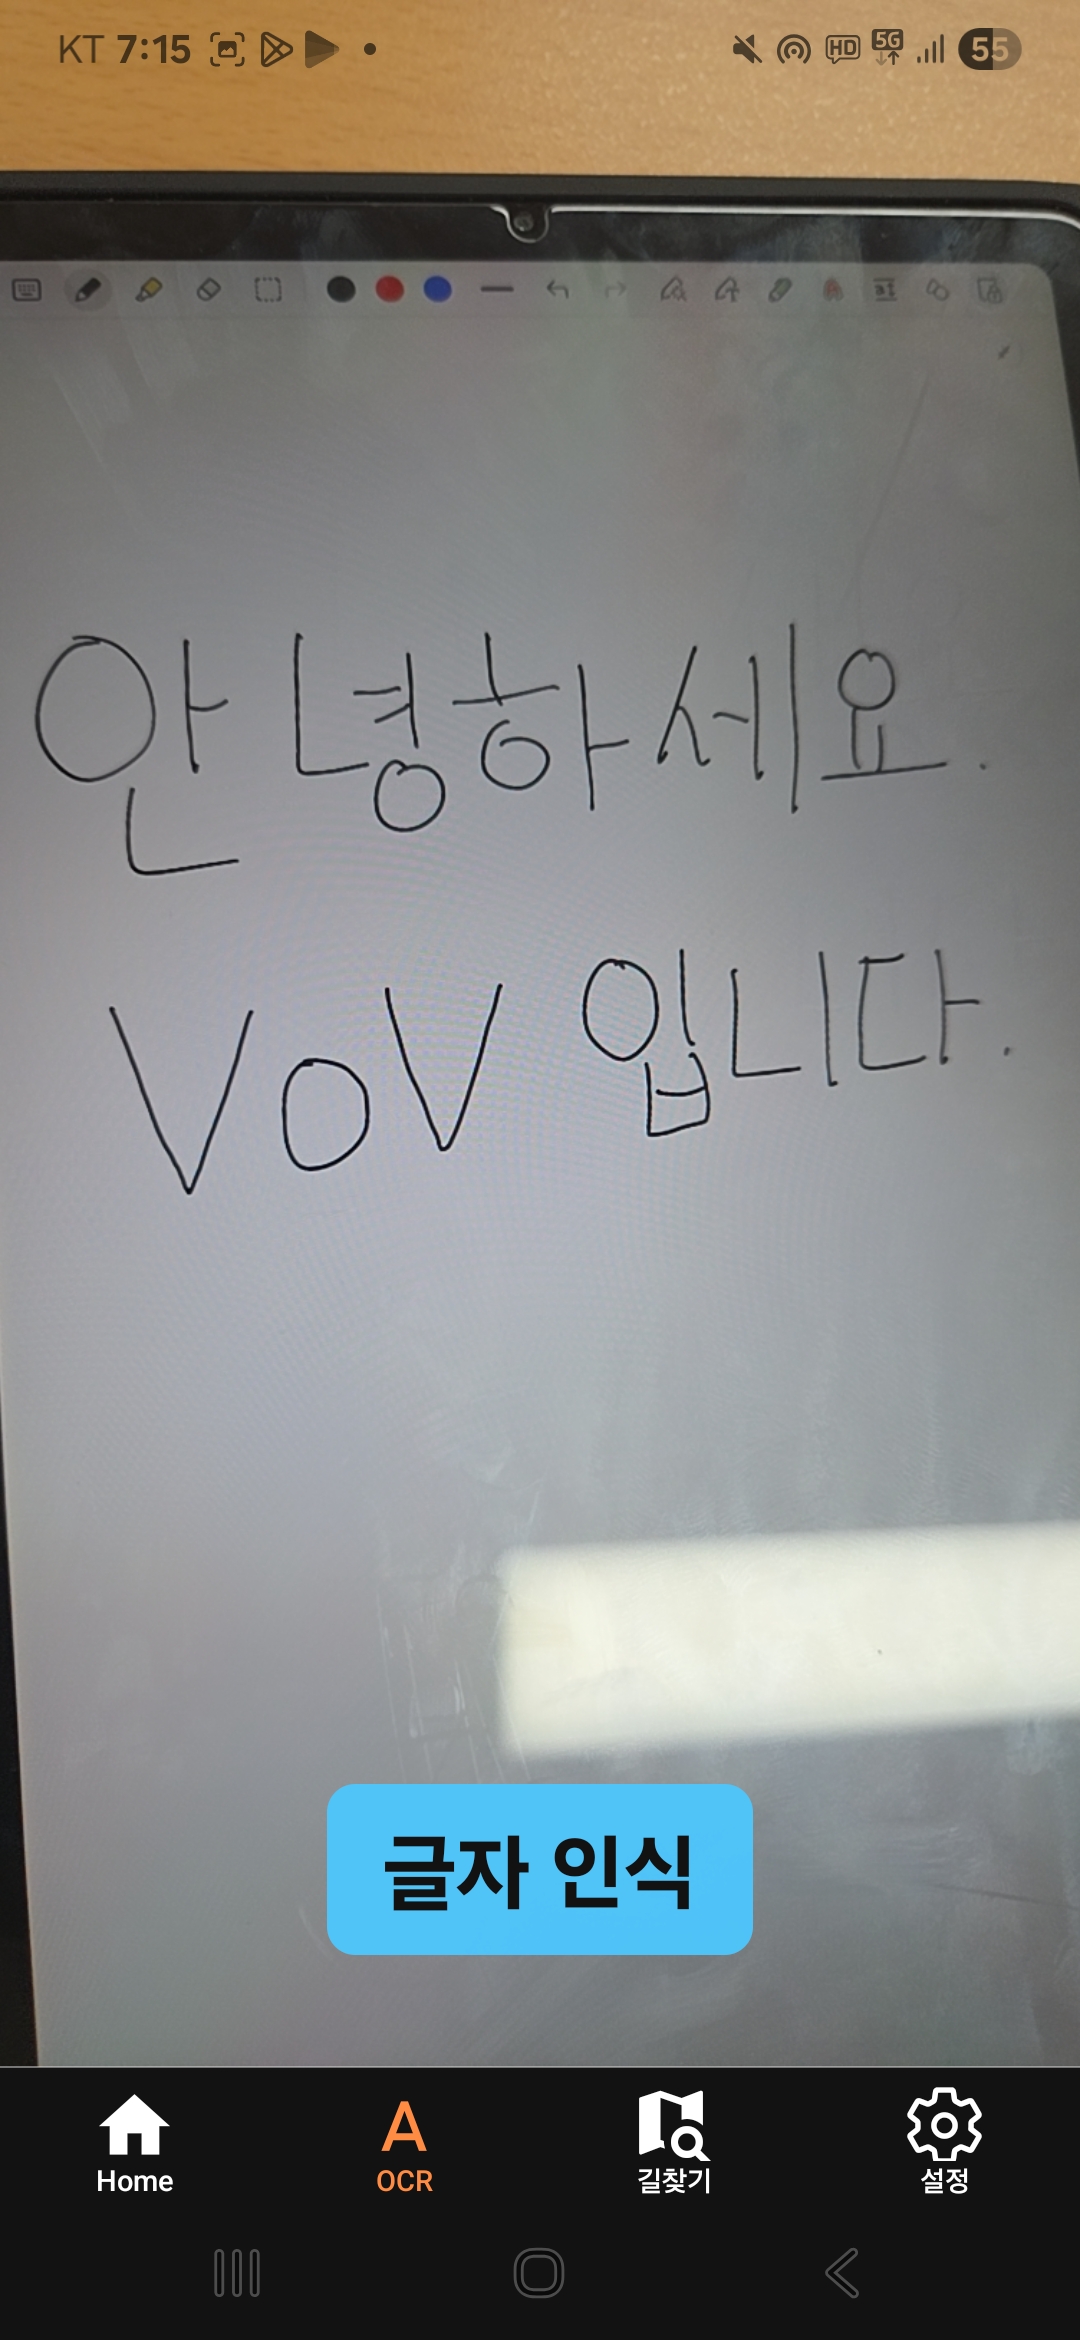 KT 7:15 HD 5G 55
안녕하세요.
VoV 입니다.
글자 인식
Home OCR 길찾기 설정